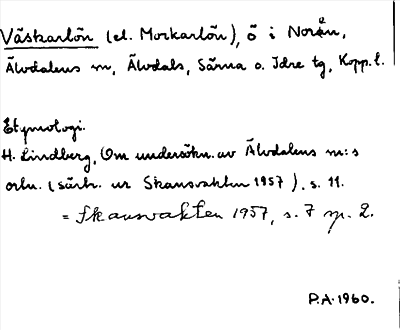 Västkarlön (el. Morkarlön), ö i Norån,
Älvdalens m, Älvdals, Särna o. Idre tg, Kopp. l.
Etymologi.
H. Lindberg, Om undersökn. av Älvdalens m:s
ortn. (särtr. ur Skansvakten 1957), s. 11.
= Skansvakten 1957, s. 7 sp. 2.
P.A. 1960.